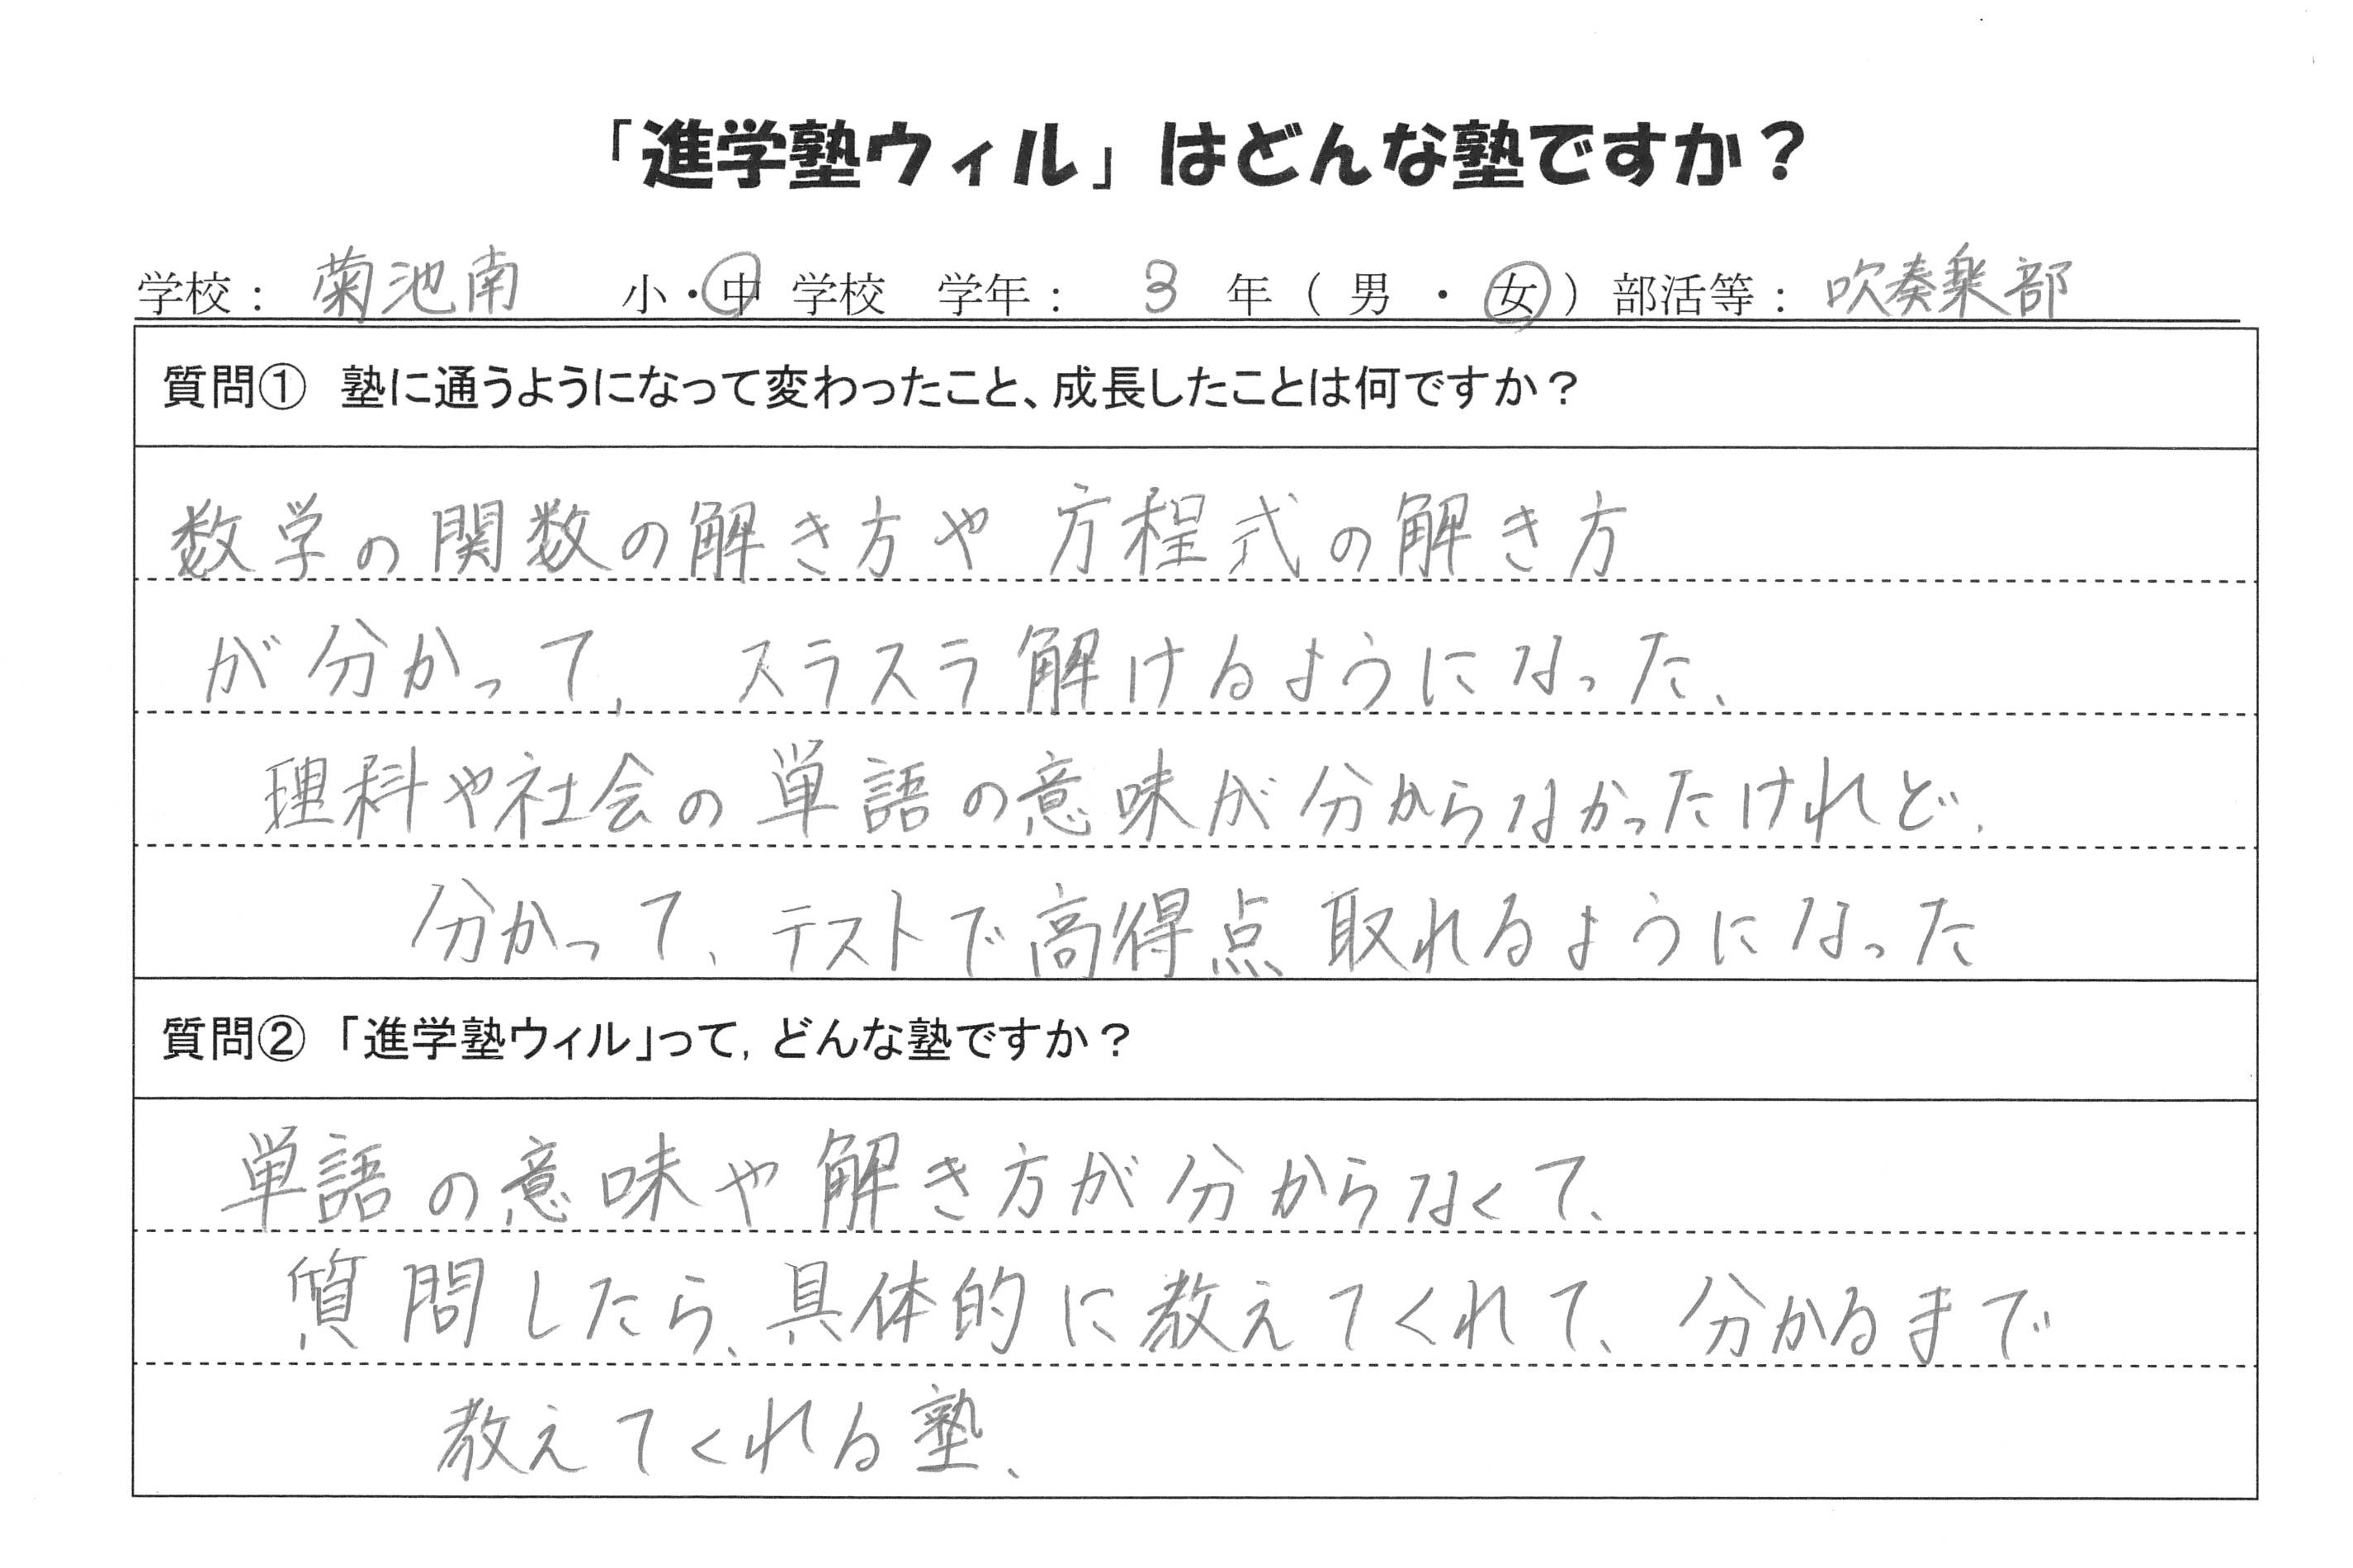 「進学塾ウィル」はどんな塾ですか？
学校： 菊池南 小・中 学校 学年： 3 年（ 男 ・ 女 ）部活等： 吹奏楽部
質問① 塾に通うようになって変わったこと、成長したことは何ですか？
数学の関数の解き方や 方程式の解き方
が分かって, スラスラ解けるようになった、
理科や社会の単語の意味が分からなかったけれど、
分かって、テストで高得点取れるようになった
質問② 「進学塾ウィル」って，どんな塾ですか？
単語の意味や解き方が分からなくて、
質問したら、具体的に教えてくれて、分かるまで
教えてくれる塾、